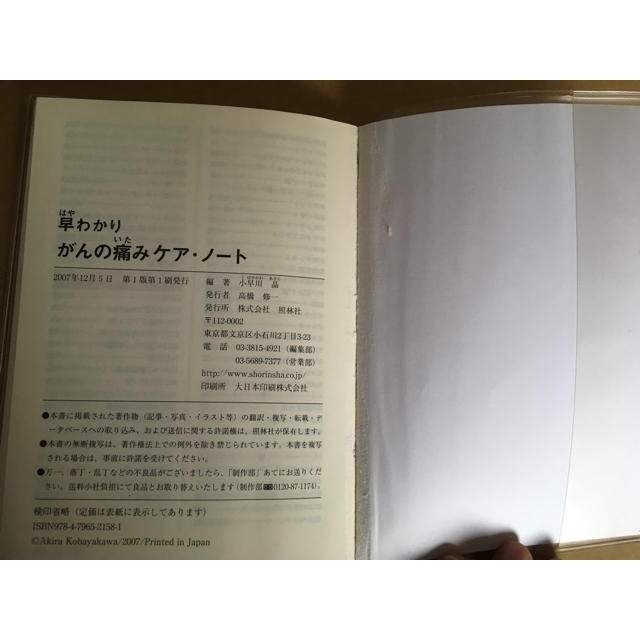 はや
早わかり
いた
がんの痛みケア・ノート
2007年12月5日　第1版第1刷発行
こばやかわ　あきら
編　著　小早川　晶
発行者　高橋　修一
発行所　株式会社　照林社
〒112-0002
東京都文京区小石川2丁目3-23
電　話　03-3815-4921（編集部）
03-5689-7377（営業部）
http://www.shorinsha.co.jp/
印刷所　大日本印刷株式会社
●本書に掲載された著作物（記事・写真・イラスト等）の翻訳・複写・転載・デ
ータベースへの取り込み、および送信に関する許諾権は、照林社が保有します。
●本書の無断複写は、著作権法上での例外を除き禁じられています。本書を複写
される場合は、事前に許諾を受けてください。
●万一、落丁・乱丁などの不良品がございましたら、「制作部」あてにお送りくだ
さい。送料小社負担にて良品とお取り替えいたします（制作部☎0120-87-1174）。
検印省略（定価は表紙に表示してあります）
ISBN978-4-7965-2158-1
©Akira Kobayakawa/2007/Printed in Japan